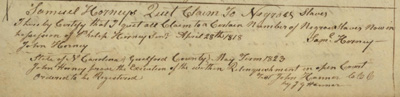 Samuel Horneys Quit Claim To Negroes Slaves
I hereby Certify that I quit all Claim to a Certain Number of Negroes Slaves Now in
the possession of Philip Horney Senr. April 28th 1818 Saml. Horney
John Horney
State of N Carolina Guilford County May Term 1823
John Horney proved the Execution of the within Relinquishment in open Court
Ordered to be Registered Test John Hanner CCC
By Hanner